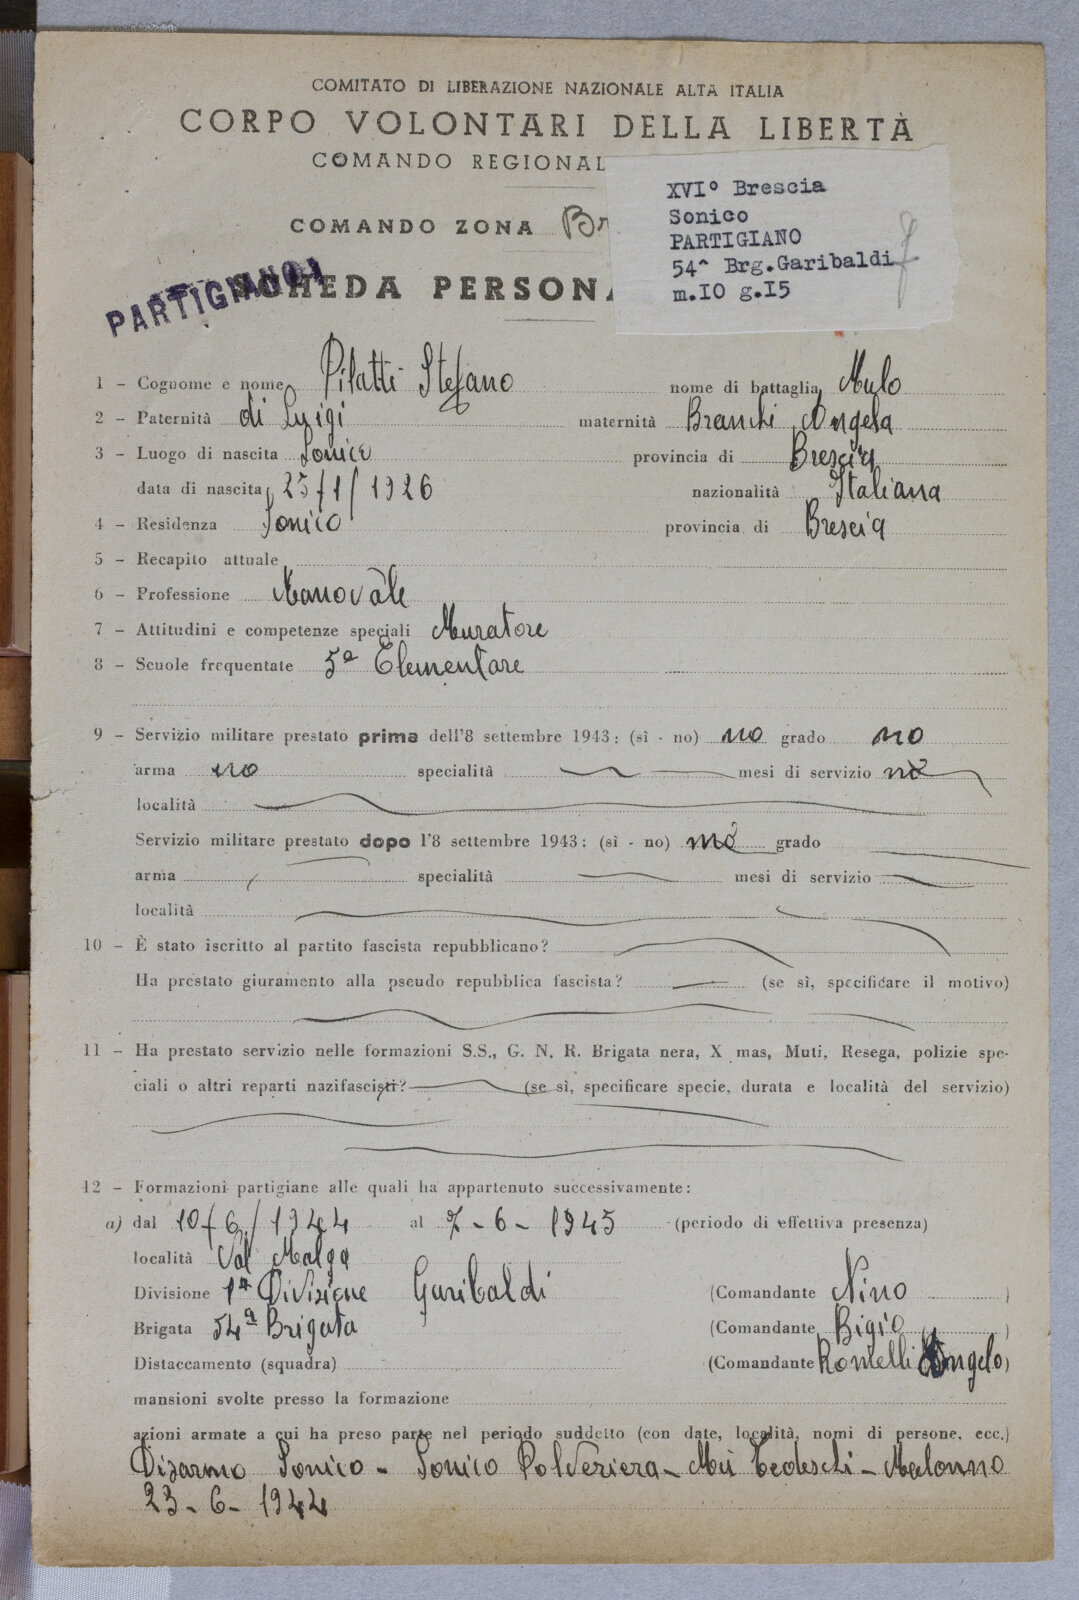 COMITATO DI LIBERAZIONE NAZIONALE ALTA ITALIA
CORPO VOLONTARI DELLA LIBERTÀ
COMANDO REGIONAL
XVI° Brescia
Sonico
PARTIGIANO
54^ Brg.Garibaldi
m.IO g.I5
COMANDO ZONA Br
PARTIGIANO
SCHEDA PERSONA
1 - Cognome e nome Pilatti Stefano nome di battaglia Mulo
2 - Paternità di Luigi maternità Branchi Angela
3 - Luogo di nascita Sonico provincia di Brescia
data di nascita 25/1/1926 nazionalità Italiana
4 - Residenza Sonico provincia di Brescia
5 - Recapito attuale
6 - Professione Manovàle
7 - Attitudini e competenze speciali Muratore
8 - Scuole frequentate 5a Elementare
9 - Servizio militare prestato prima dell'8 settembre 1943: (sì - no) no grado no
arma no specialità mesi di servizio no
località
Servizio militare prestato dopo l'8 settembre 1943: (sì - no) no grado
arma specialità mesi di servizio
località
10 - È stato iscritto al partito fascista repubblicano?
Ha prestato giuramento alla pseudo repubblica fascista? (se sì, specificare il motivo)
11 - Ha prestato servizio nelle formazioni S.S., G. N. R. Brigata nera, X mas, Muti, Resega, polizie spe-
ciali o altri reparti nazifascisti? (se sì, specificare specie, durata e località del servizio)
12 - Formazioni partigiane alle quali ha appartenuto successivamente:
a) dal 10/6/1944 al 7-6-1945 (periodo di effettiva presenza)
località Val Malga
Divisione 1a Divisione Garibaldi (Comandante Nino)
Brigata 54a Brigata (Comandante Bigio)
Distaccamento (squadra) (Comandante Romelli Angelo)
mansioni svolte presso la formazione
azioni armate a cui ha preso parte nel periodo suddetto (con date, località, nomi di persone, ecc.)
Disarmo Sonico - Sonico Polveriera - Mù Tedeschi - Malonno
23-6-1944